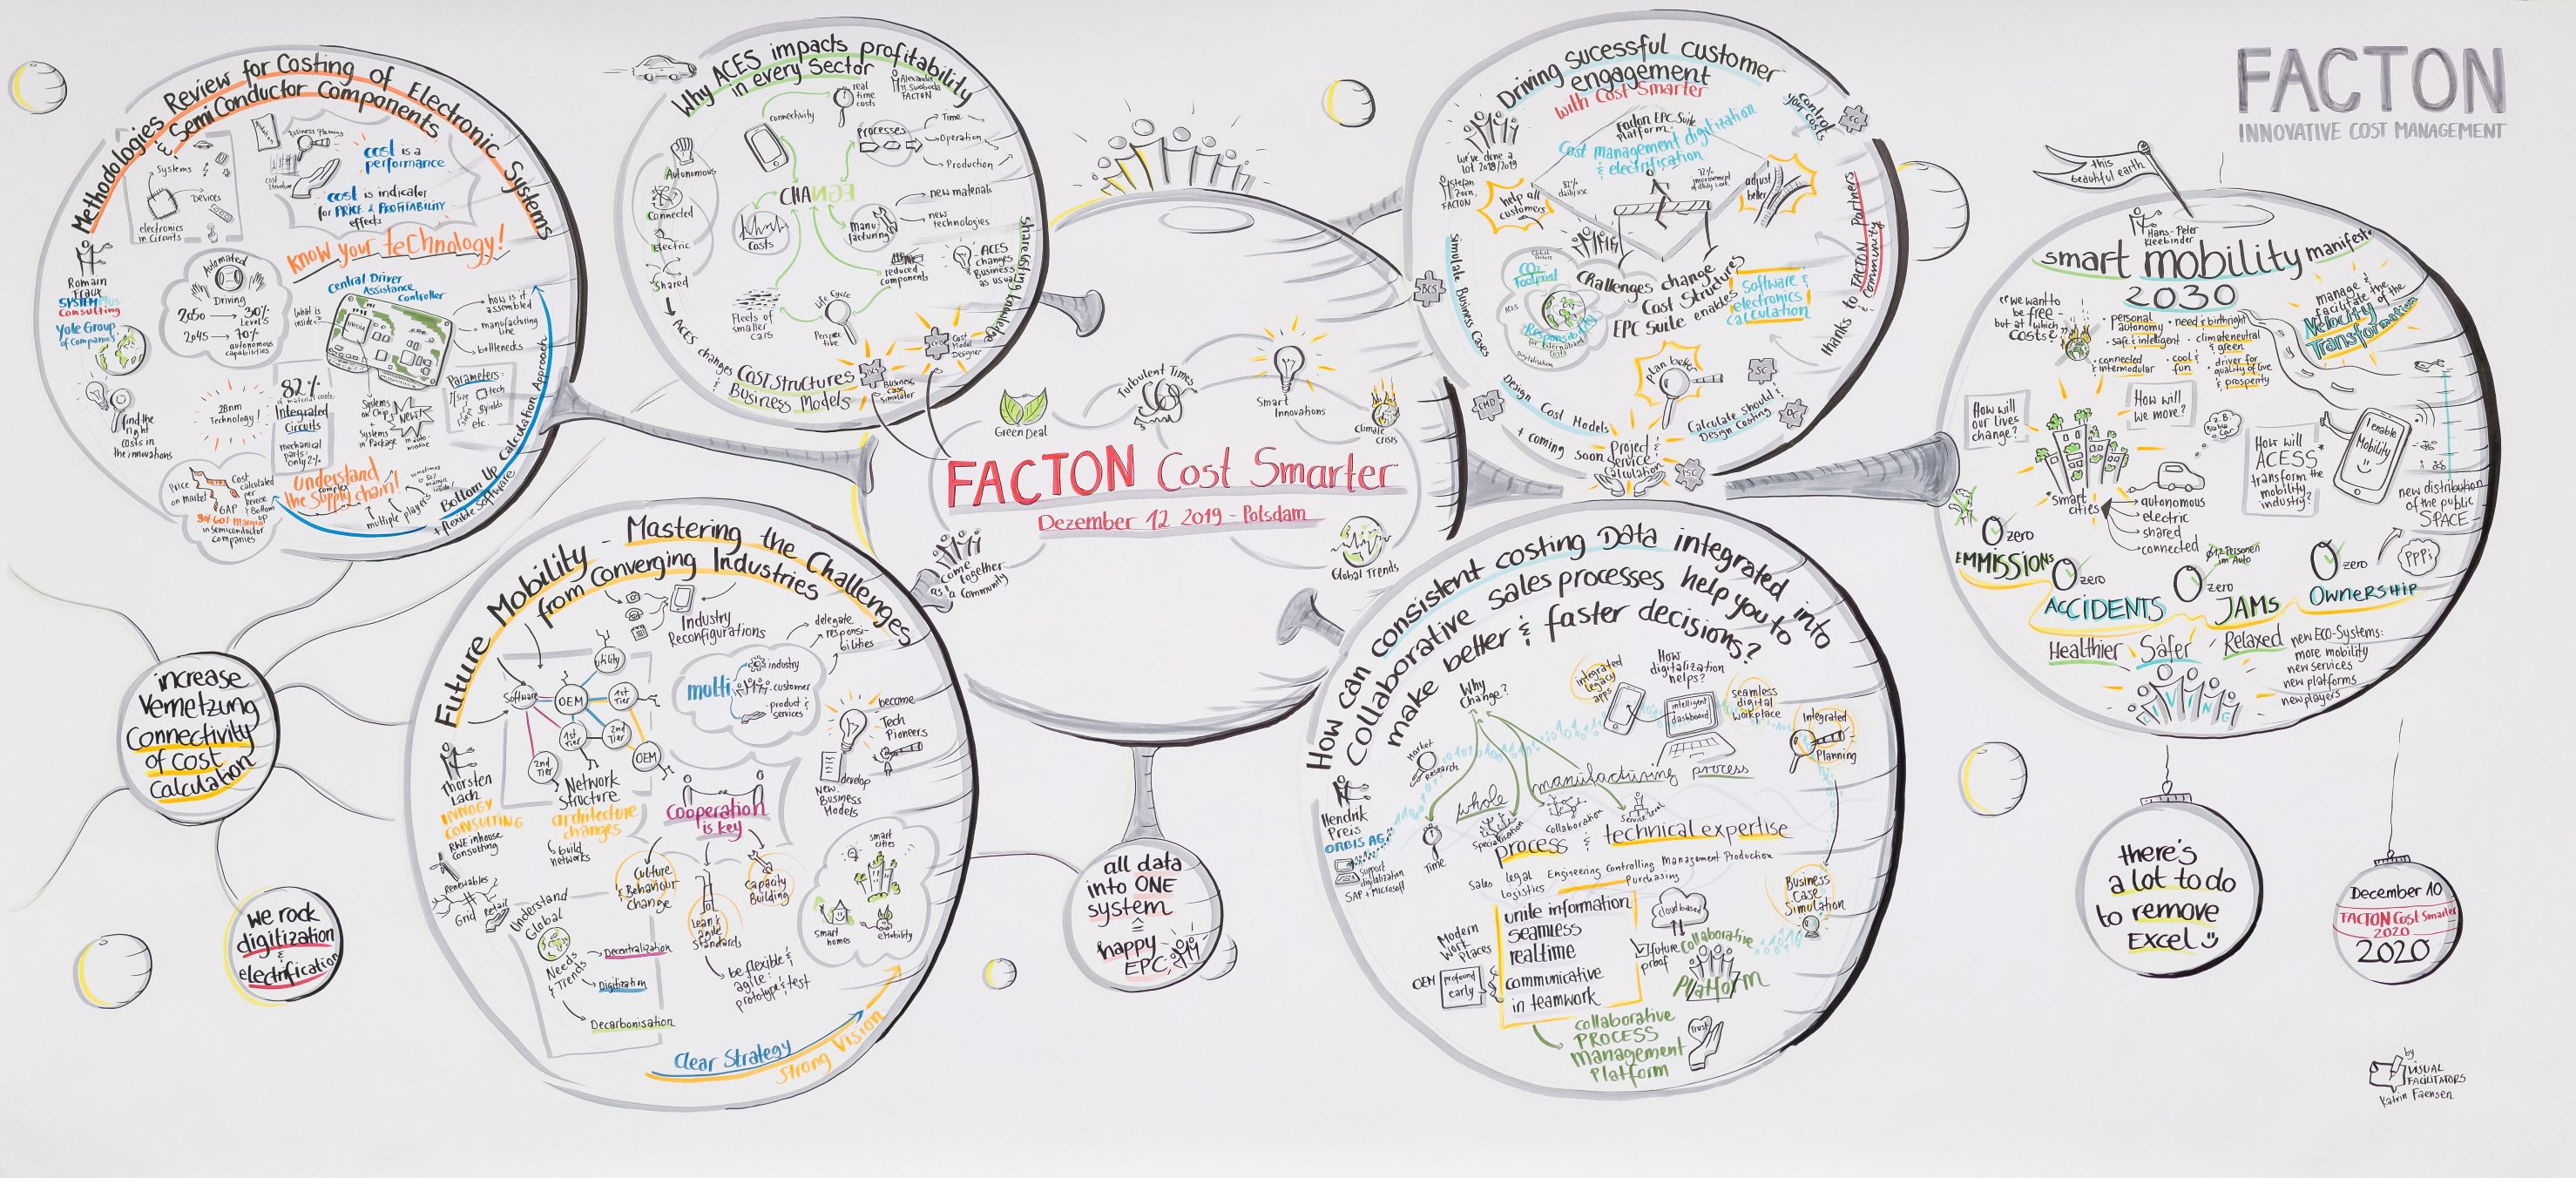 FACTON
INNOVATIVE COST MANAGEMENT
Methodologies Review for Costing of Electronic Systems
& SemiConductor Components
Systems
Devices
electronics
in Circuits
Business Planning
cost structure
cost is a
performance
cost is indicator
for PRICE & PROFITABILITY
effects
Know your teChnology!
Romain
Fraux
SYSTEMPlus
consulting
Yole Group
of Companies
Automated
Driving
2030 → 30%
Level 5
2045 → 70%
autonomous
capabilities
Central Driver
Assistance
Controller
What is
inside?
how is it
assembled
manufacturing
line
bottlenecks
find the
right
costs in
the innovations
28nm
Technology!
82%
of material costs:
Integrated
Circuits
mechanical
parts:
only 2%
Systems
on Chip
+
Systems
in Package
NEW
Parameters:
Size
tech
yields
etc.
Price
on market
Cost
calculated
per
Bottom
up
GAP
in Semiconductor
companies
Understand
complex
the Supply chain!
multiple players
Bottom Up Calculation Approach
+ flexible Software
Why ACES impacts profitability
in every Sector
Alexander
M. Swoboda
FACTON
real
time
costs
connectivity
processes
Time
Operation
Production
Autonomous
Connected
electric
Shared
CHANGE
costs
manu-
facturing
new materials
new
technologies
reduced
components
ACES
changes
Business
as usual
Fleets of
smaller
cars
Life Cycle
Perspec-
tive
share using knowledge
ACES changes COST STRUCTURES
& Business Models
Business
Case
Simulator
Cost
Model
Designer
Green Deal
Turbulent Times
Smart
Innovations
Climate
crisis
FACTON Cost Smarter
Dezember 12 2019 - Potsdam
come
together
as a community
Global Trends
Driving sucessful customer
engagement
with Cost Smarter
Control
your costs
CC
We've done a
lot 2018/2019
Stefan
Zorn,
FACTON
Facton EPC Suite
Platform:
Cost management digitization
& electrification
help all
customers
82%
daily use
72%
improvement
of daily work
adjust
better
Simulate Business Cases
BCS
CO2
Footprint
ACES
Responsibility
for Externalized
Costs
Digitalisation
Challenges change
Cost Structures
EPC Suite enables
Software &
electronics
Calculation
thanks to FACTON Partners
Community
plan better
SC
DC
CMD
Design Cost Models
Calculate Should &
Design Costing
+ coming
soon
Project &
Service
Calculation
PSC
this
beautiful earth
Hans-Peter
Kleebinder
smart mobility manifest
2030
"we want to
be free -
but at which
costs?"
personal
autonomy
need & birthright
safe & intelligent
climateneutral
& green
connected
& intermodular
cool &
fun
driver for
quality of live
& prosperty
manage &
facilitate the
Velocity of the
Transformation
How will
our lives
change?
How will
we move?
z.B.
Bubble
Car
How will
ACESS
transform the
mobility
industry?
I enable
Mobility
smart
cities
autonomous
electric
shared
connected
new distribution
of the public
SPACE
0 zero
EMMISSIONS
0 zero
ACCIDENTS
Ø 1,2 Personen
im Auto
0 zero
JAMS
0 zero
OWNERSHIP
PPP's
Healthier Safer Relaxed
LIVING
new ECO-Systems:
more mobility
new services
new platforms
new players
increase
Vernetzung
Connectivity
of cost
Calculation
we rock
digitization
&
electrification
Future Mobility - Mastering the Challenges
from Converging Industries
Industry
Reconfigurations
delegate
responsi-
bilities
utility
Software
OEM
1st
Tier
1st
Tier
2nd
Tier
2nd
Tier
OEM
Network
Structure
architecture
changes
build
networks
multi
industry
customer
product &
services
become
Tech
Pioneers
develop
New
Business
Models
Thorsten
Lach
INNOGY
CONSULTING
RWE inhouse
Consulting
renewables
Grid
Retail
Cooperation
is key
Culture
& Behaviour
change
Lean &
agile
Standards
Capacity
Building
smart
cities
Smart
homes
eMobility
Understand
Global
Needs
& Trends
Decentralization
Digitization
Decarbonisation
be flexible &
agile:
prototype & test
Clear Strategy
Strong Vision
all data
into ONE
system
=
happy
EPC
How can consistent costing Data integrated into
Collaborative sales processes help you to
make better & faster decisions?
Why
Change?
integrated
legacy
apps
How
digitalization
helps?
intelligent
dashboard
seamless
digital
workplace
Integrated
Planning
Market
Research
Hendrik
Preis
ORBIS AG
support
digitalization
SAP + Microsoft
Time
whole manufacturing process
Specialisation
Collaboration
Service level
process & technical expertise
Sales Legal Engineering Controlling Management Production
Logistics Purchasing
Business
Case
Simulation
Modern
Work
Places
OEM
profound
early
unite information
seamless
realtime
communicative
in teamwork
cloud based
future
proof
Collaborative
Platform
collaborative
PROCESS
management
Platform
Trust
there's
a lot to do
to remove
Excel
December 10
FACTON Cost Smarter
2020
2020
by
VISUAL
FACILITATORS
Katrin Faensen